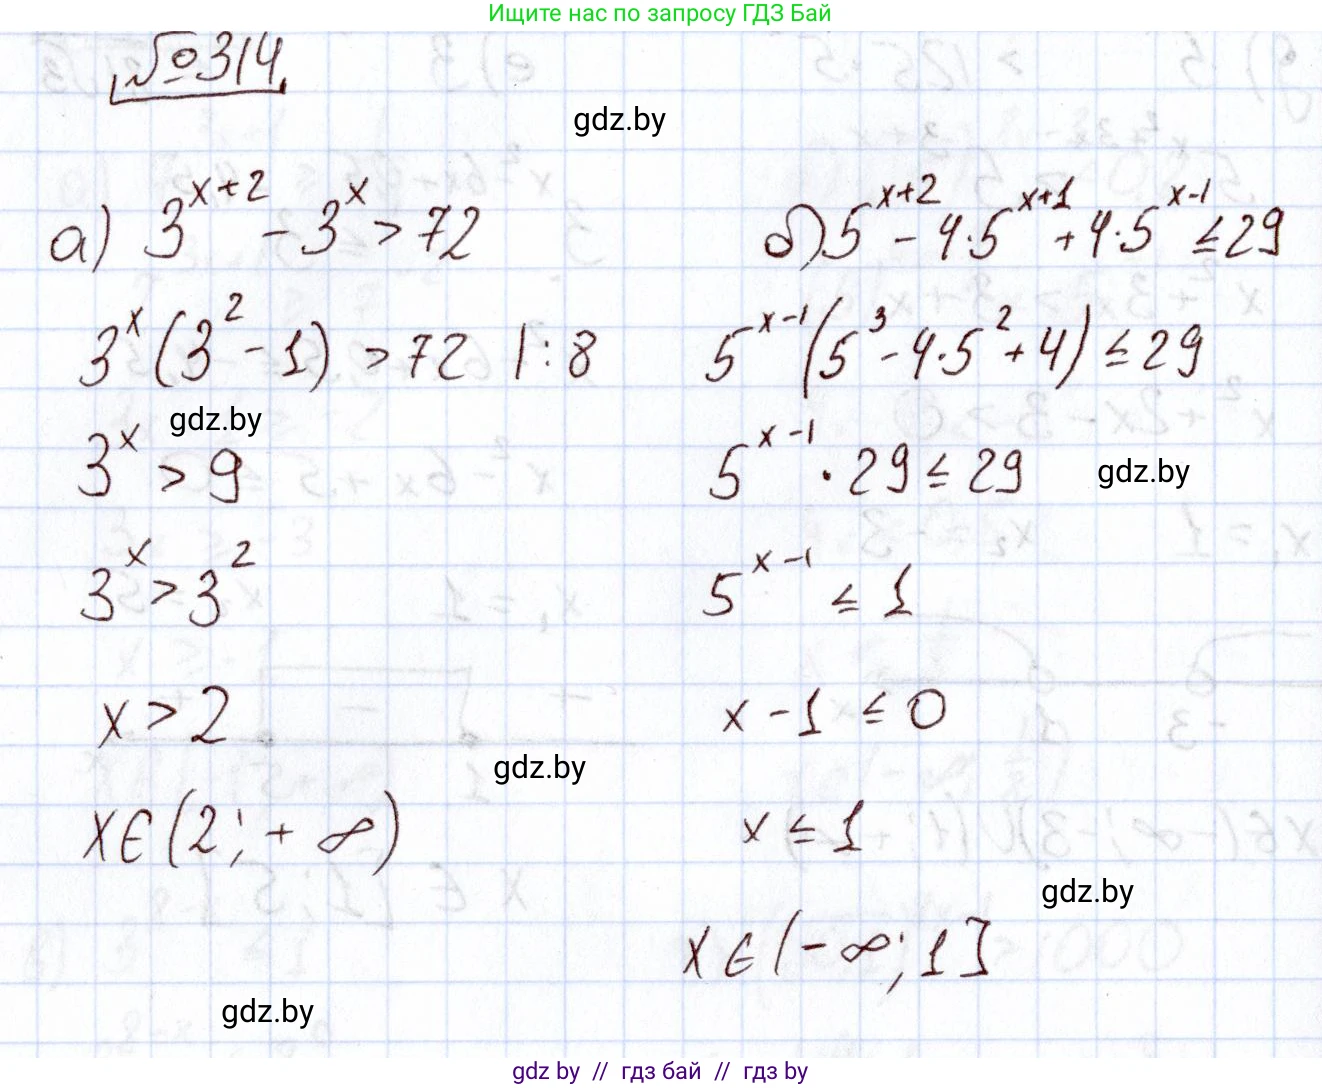 Ищите нас по запросу ГДЗ Бай
№314
gdz.by
а) 3^{x+2} - 3^x > 72
3^x (3^2 - 1) > 72 |:8
gdz.by
3^x > 9
3^x > 3^2
x > 2
gdz.by
x ∈ (2; + ∞)
gdz.by
б) 5^{x+2} - 4·5^{x+1} + 4·5^{x-1} ≤ 29
5^{x-1} (5^3 - 4·5^2 + 4) ≤ 29
5^{x-1} · 29 ≤ 29
gdz.by
5^{x-1} ≤ 1
x - 1 ≤ 0
x ≤ 1
gdz.by
x ∈ (-∞; 1]
gdz by // гдз бай // гдз by